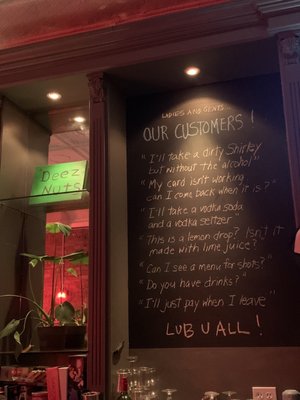 LADIES AND GENTS...
OUR CUSTOMERS!
"I'll take a dirty Shirley
but without the alcohol"
"My card isn't working
can I come back when it is?"
"I'll take a vodka soda
and a vodka seltzer"
"This is a lemon drop? Isn't it
made with lime juice?"
"Can I see a menu for shots?"
"Do you have drinks?"
"I'll just pay when I leave"
LUB U ALL!
Deez
Nuts